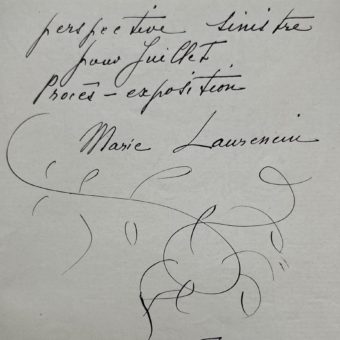 perspective sinistre
pour Juillet
Procès - exposition
Marie Laurencin